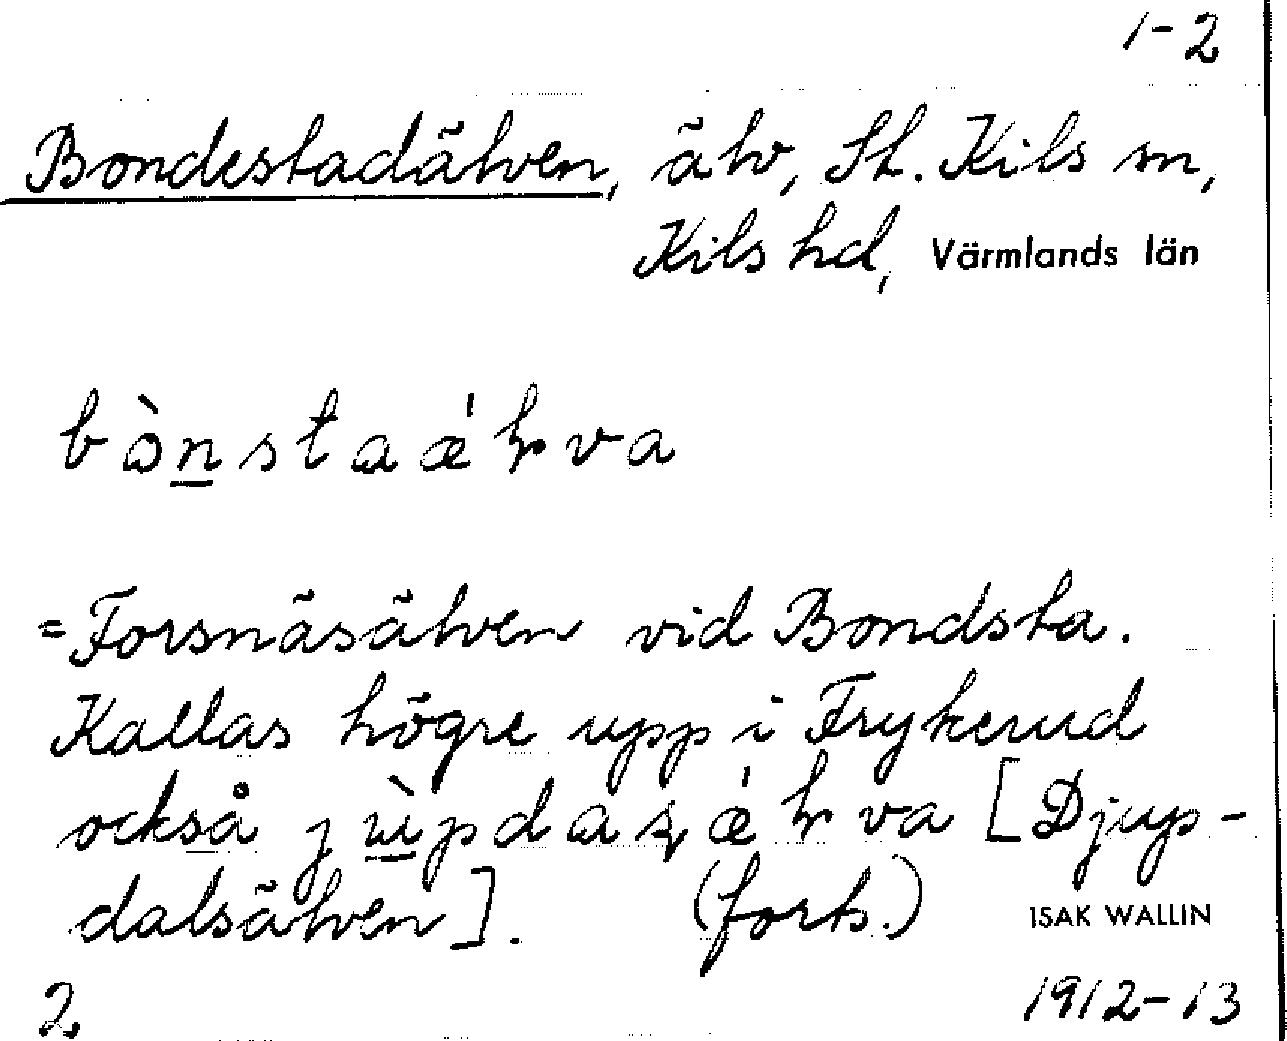 1-2
Bondestadälven, älv, St. Kils sn,
Kils hd, Värmlands län
bònstaǽɫva
=Forsnäsälven vid Bondsta.
Kallas högre upp i Frykerud
också [Djup-
dalsälven]. (forts.)
ISAK WALLIN
2
1912-13